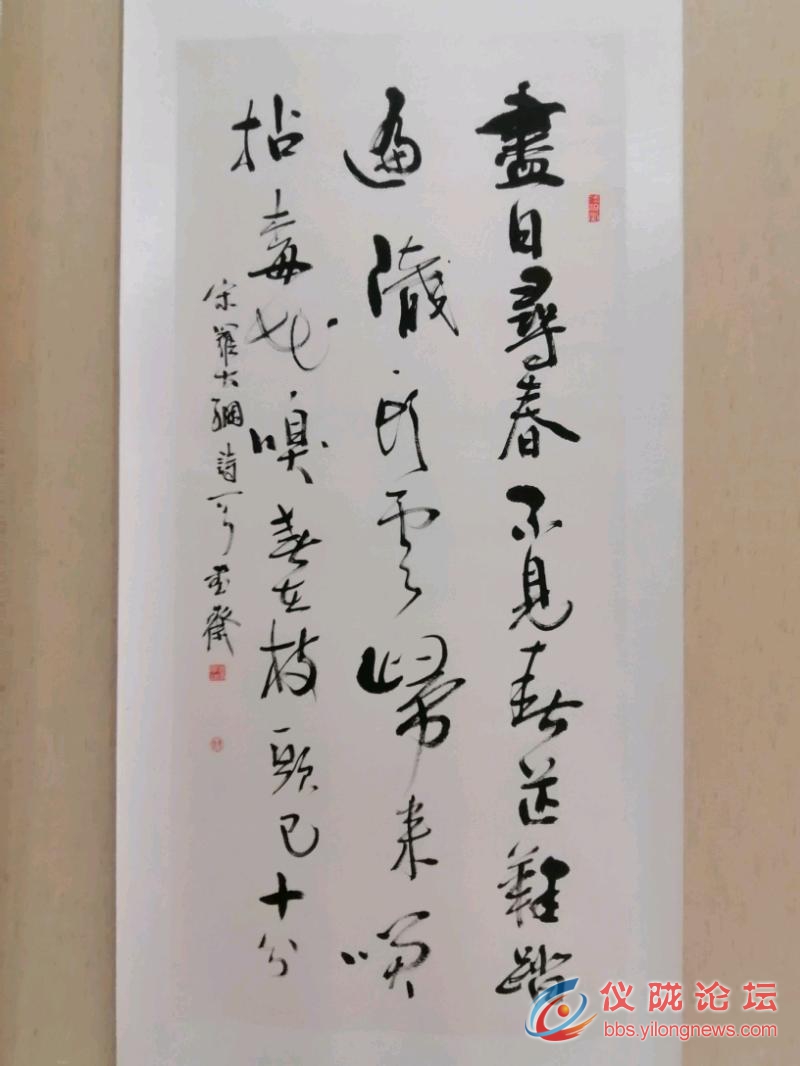 盡日尋春不見春芒鞋踏
遍隴頭雲歸來咲
拈梅花嗅春在枝頭已十分
宋羅大綱詩一
仪陇论坛
bbs.yilongnews.com